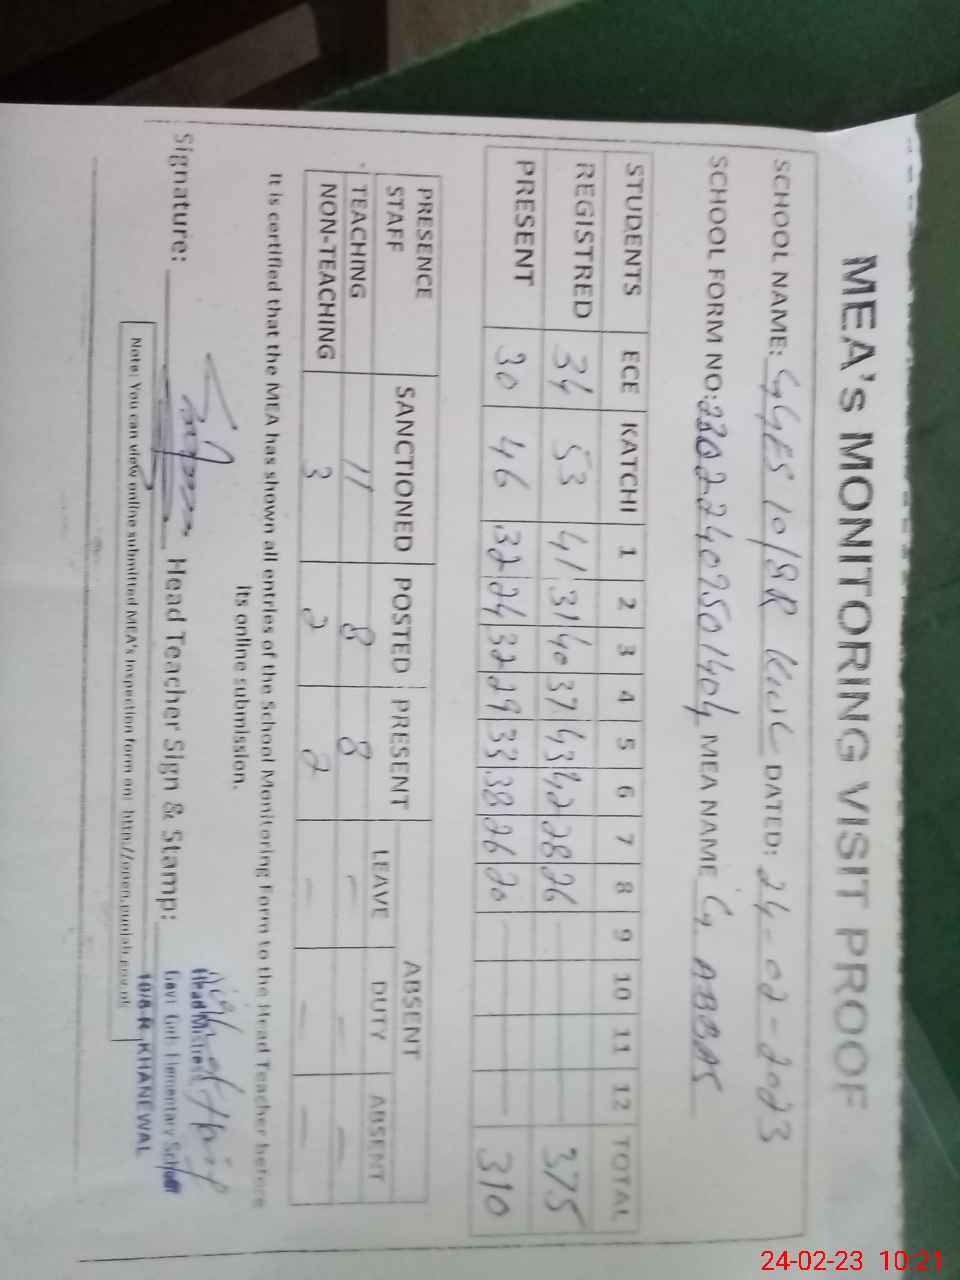 MEA's MONITORING VISIT PROOF
SCHOOL NAME: GGES 10/8R KWL DATED: 24-02-2023
SCHOOL FORM NO: 23022409501404 MEA NAME G. ABBAS
STUDENTS ECE KATCHI 1 2 3 4 5 6 7 8 9 10 11 12 TOTAL
REGISTRED 34 53 41 31 40 37 43 42 28 26 375
PRESENT 30 46 32 24 32 29 33 38 26 20 310
PRESENCE STAFF SANCTIONED POSTED PRESENT ABSENT
LEAVE DUTY ABSENT
TEACHING 11 8 8 - - -
NON-TEACHING 3 2 2 - - -
It is certified that the MEA has shown all entries of the School Monitoring Form to the Head Teacher before
its online submission.
Signature: Head Teacher Sign & Stamp:
Head Mistress
Govt. Girls Elementary School
10/8-R, KHANEWAL
Note: You can view online submitted MEA's Inspection form on: http://open.punjab.gov.pk
24-02-23 10:21